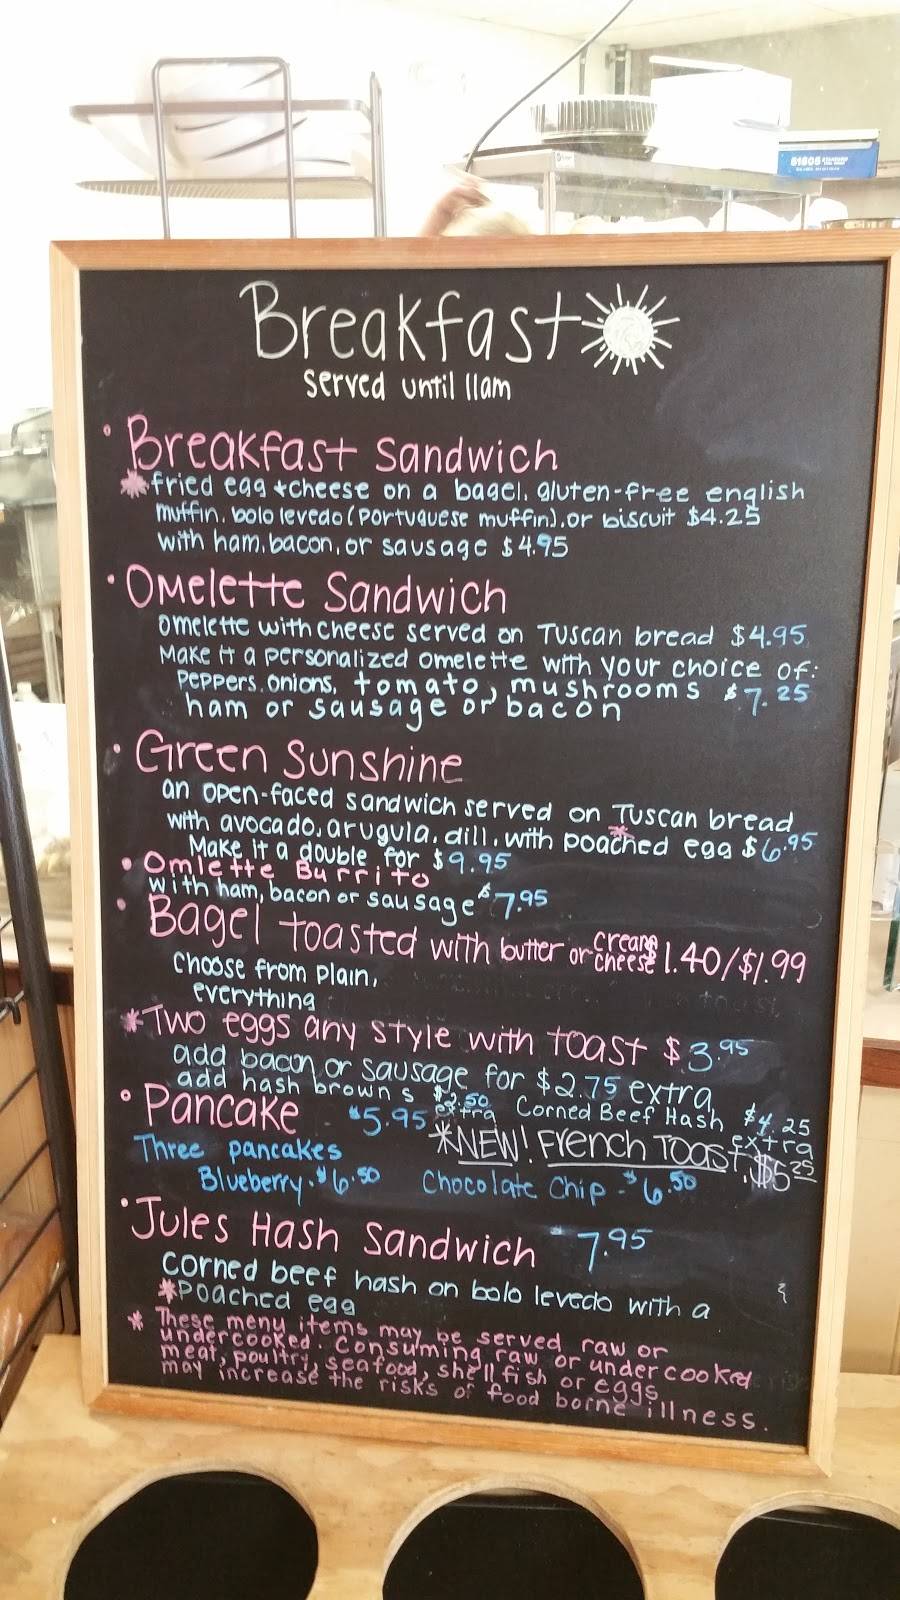 51605 STANDARD
Breakfast
served until 11am
• Breakfast Sandwich
* fried egg + cheese on a bagel, gluten-free english
muffin, bolo levedo (Portuguese muffin), or biscuit $4.25
with ham, bacon, or sausage $4.95
• Omelette Sandwich
omelette with cheese served on Tuscan bread $4.95
Make it a personalized omelette with your choice of:
Peppers, onions, tomato, mushrooms $7.25
ham or sausage or bacon
• Green Sunshine
an open-faced sandwich served on Tuscan bread
with avocado, arugula, dill, with *poached egg $6.95
Make it a double for $9.95
• Omlette Burrito
with ham, bacon or sausage $7.95
• Bagel toasted with butter or cream cheese $1.40/$1.99
Choose from plain,
everything
*Two eggs any style with toast $3.95
add bacon or sausage for $2.75 extra
add hash browns $2.50 extra Corned Beef Hash $4.25 extra
• Pancake $5.95
*NEW! French Toast $5.25
Three pancakes
Blueberry - $6.50 Chocolate Chip - $6.50
• Jules Hash Sandwich $7.95
corned beef hash on bolo levedo with a
*poached egg
* These menu items may be served raw or
undercooked. Consuming raw or undercooked
meat, poultry, seafood, shellfish or eggs
may increase the risks of food borne illness.